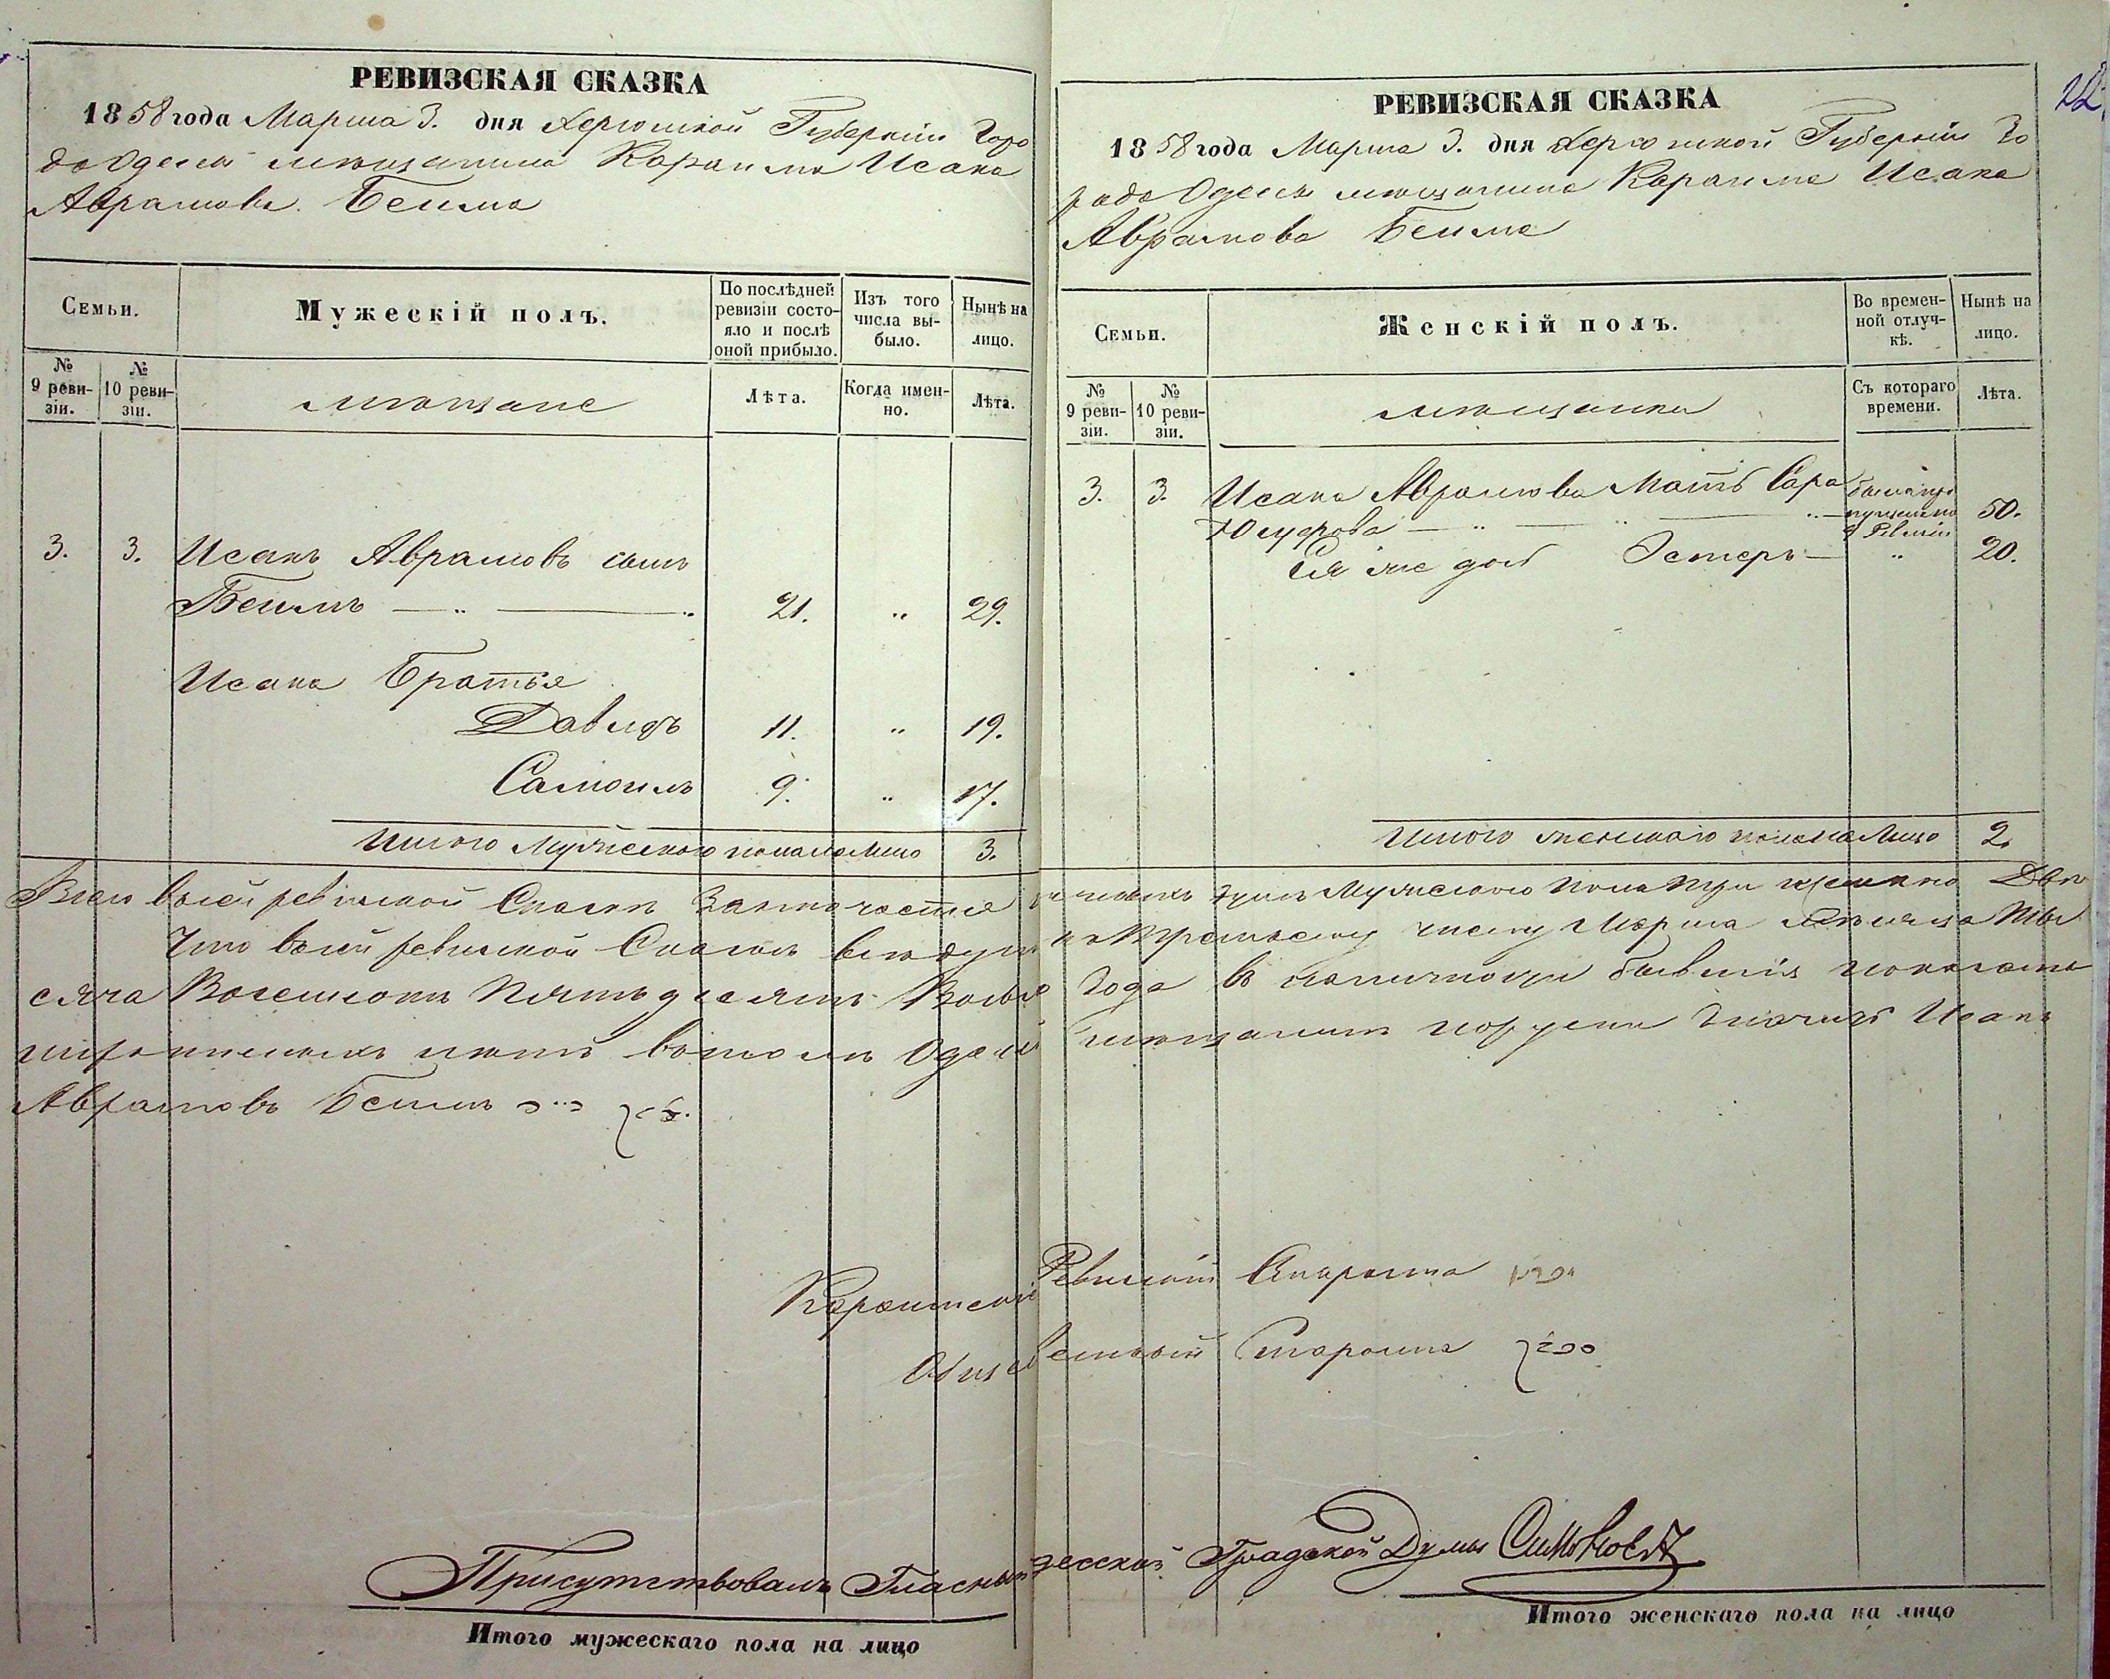 РЕВИЗСКАЯ СКАЗКА
1858 года Марта 3. дня Херсонской Губернии Горо
да Одессы мещанина Караима Исака
Аврамова Беима
Семьи.
Мужескій полъ.
По послѣдней ревизіи состояло и послѣ оной прибыло.
Изъ того числа выбыло.
Нынѣ на лицо.
№ 9 ревизіи.
№ 10 ревизіи.
мещане
Лѣта.
Когда именно.
Лѣта.
3. 3. Исакъ Аврамовъ сынъ
Беимъ 21. " 29.
Исака Братья
Давидъ 11. " 19.
Самоилъ 9. " 17.
Итого Мужескаго пола на Лицо 3.
РЕВИЗСКАЯ СКАЗКА
1858 года Марта 3. дня Херсонской Губернии Го
рода Одессы мещанина Караима Исака
Аврамова Беима
Семьи.
Женскій полъ.
Во временной отлучкѣ.
Нынѣ на лицо.
№ 9 ревизіи.
№ 10 ревизіи.
мещанки
Съ котораго времени.
Лѣта.
3. 3. Исака Аврамова Мать Сара
Юсуфова 50.
Ея же дочь Эстеръ " 20.
Итого женскаго пола на Лицо 2.
Всего въ сей ревизской Сказкѣ Заключается душъ Мужескаго пола три Две
Что въ сей ревизской Сказкѣ все души къ третьему числу Марта Месяца Ты
сяча Восемсотъ Пятьдесятъ Года въ наличности бывшія показаны
Одесс мещанинъ Исакъ
Аврамовъ Беимъ
Караимскій Ревизскій Староста
Староста
Присутствовалъ Гласный Одесской Градской Думы Симоновъ
Итого мужескаго пола на лицо
Итого женскаго пола на лицо
22